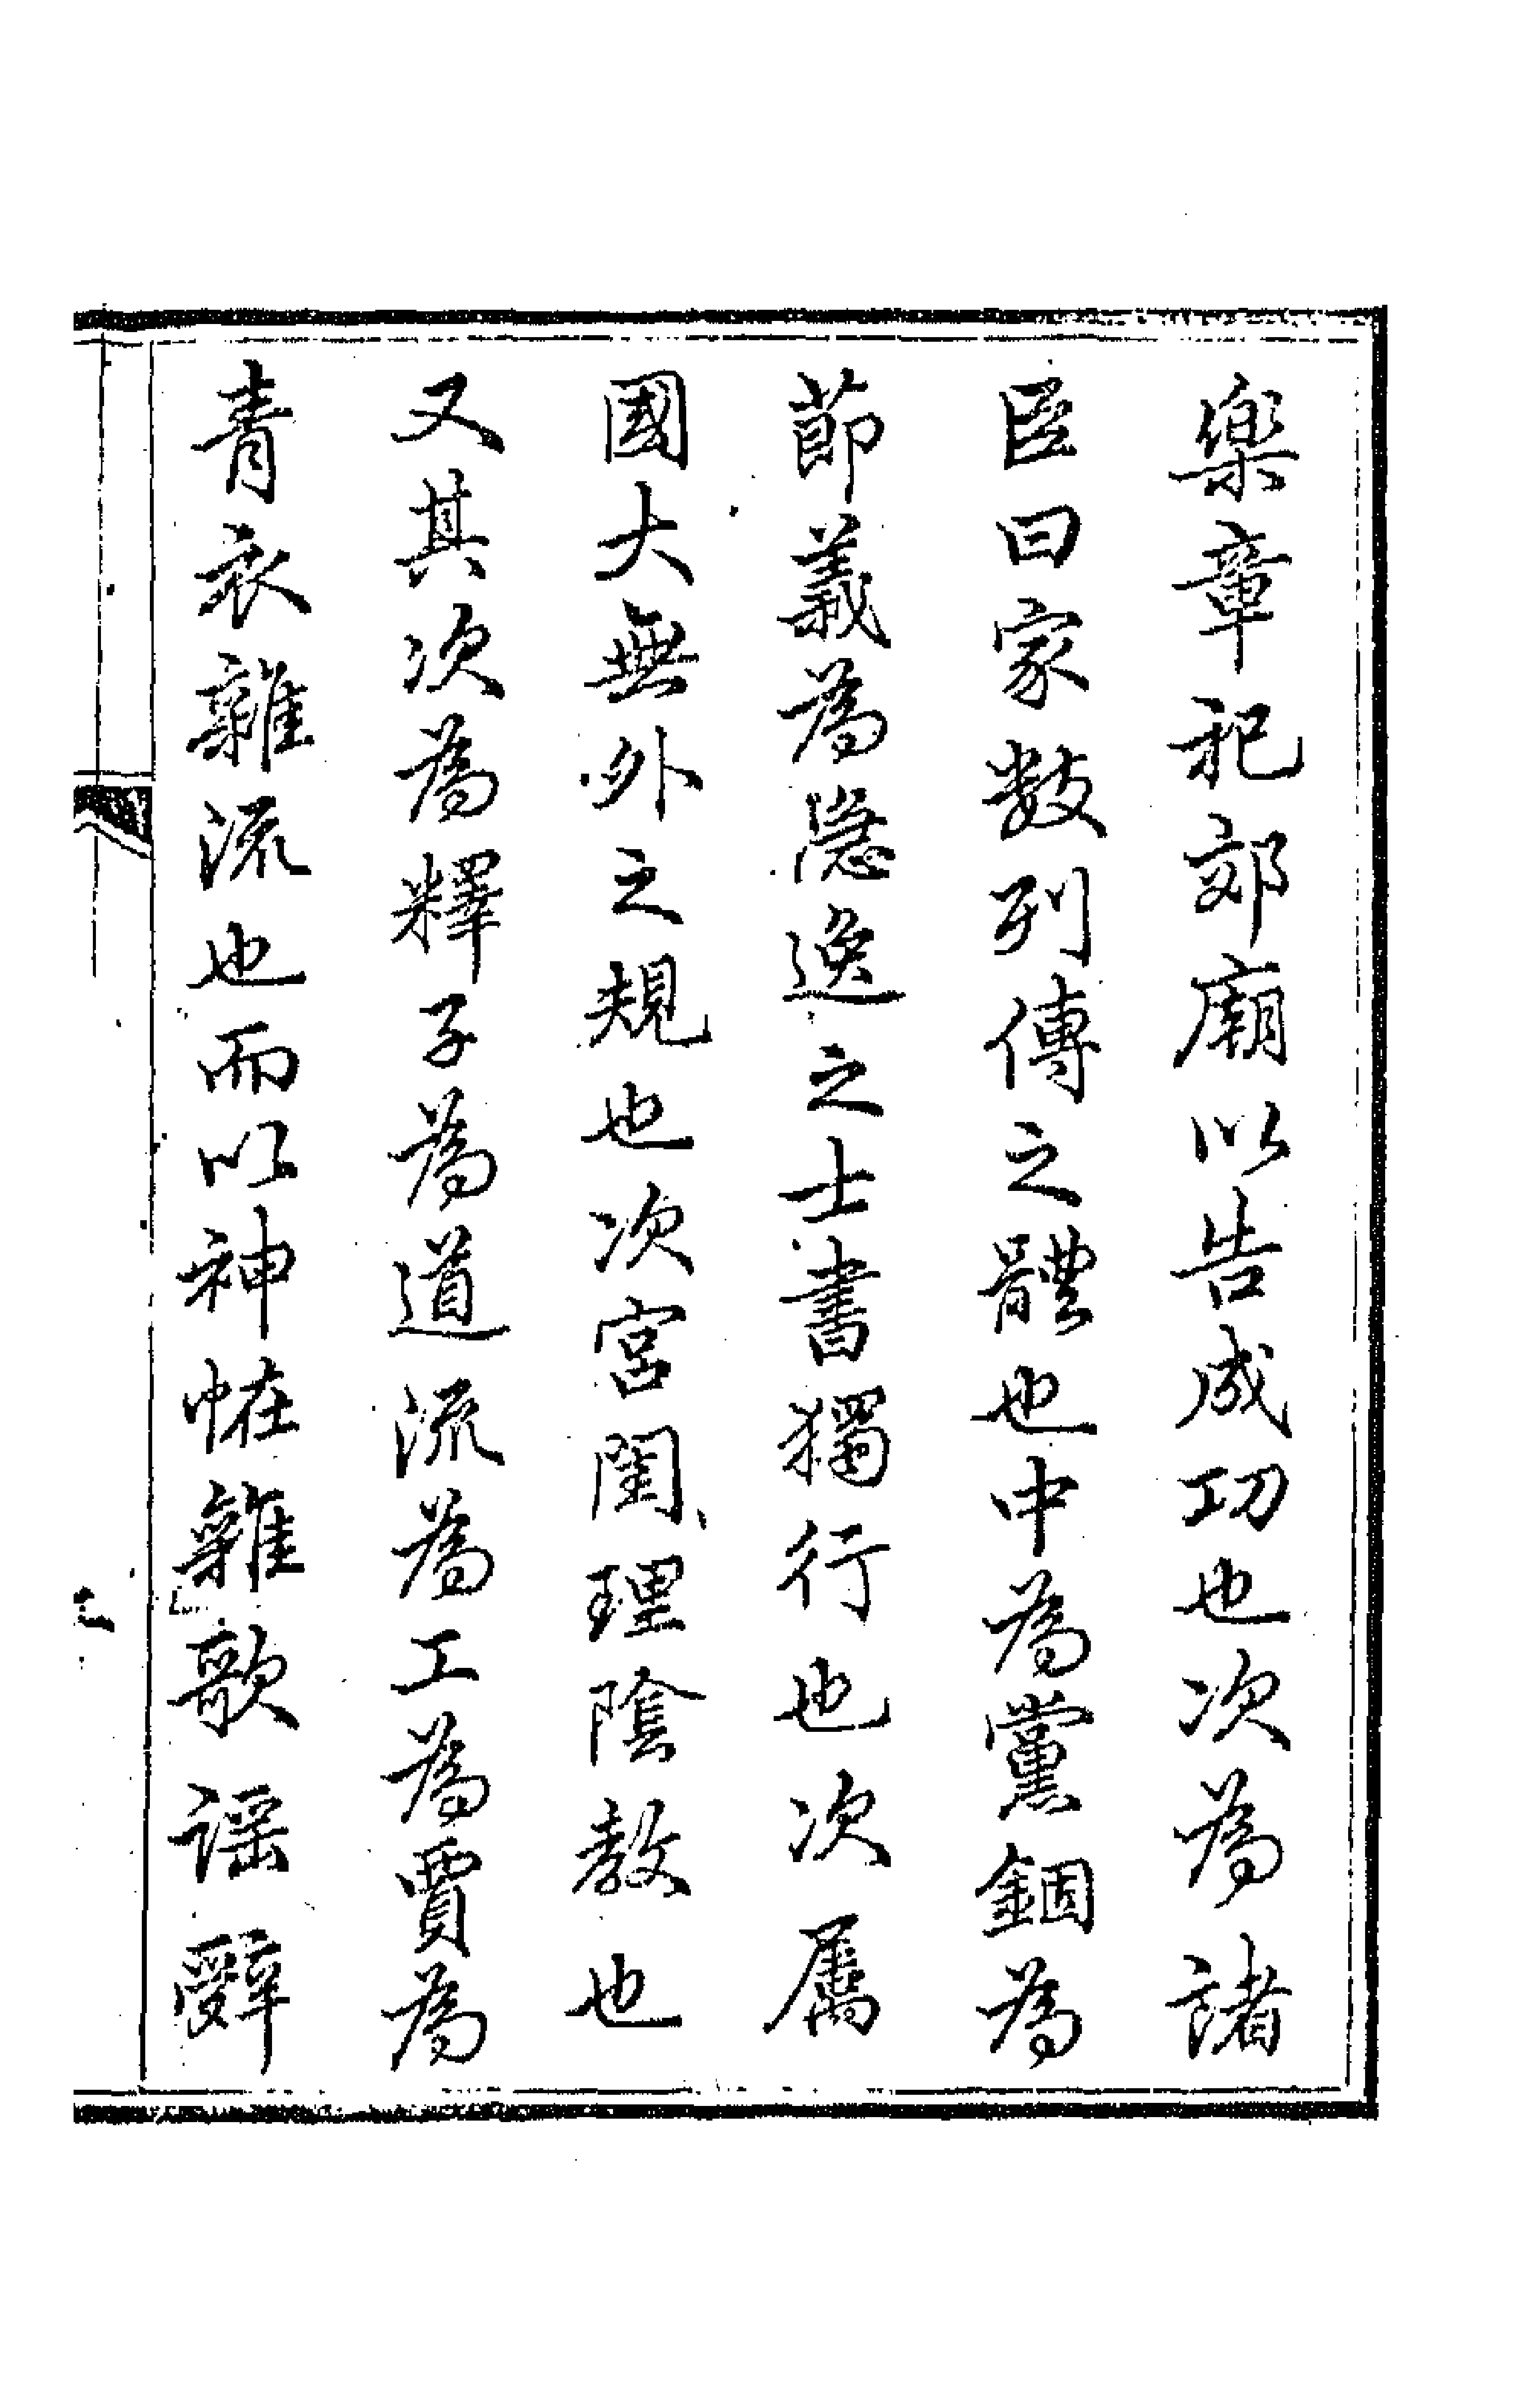 樂章祀郊廟以告成功也次為諸
臣曰家數列傳之體也中為黨錮為
節義為隱逸之士書獨行也次屬
國大無外之規也次宮閨理陰教也
又其次為釋子為道流為工為賈為
青衣雜流也而以神恠雜歌謡辭